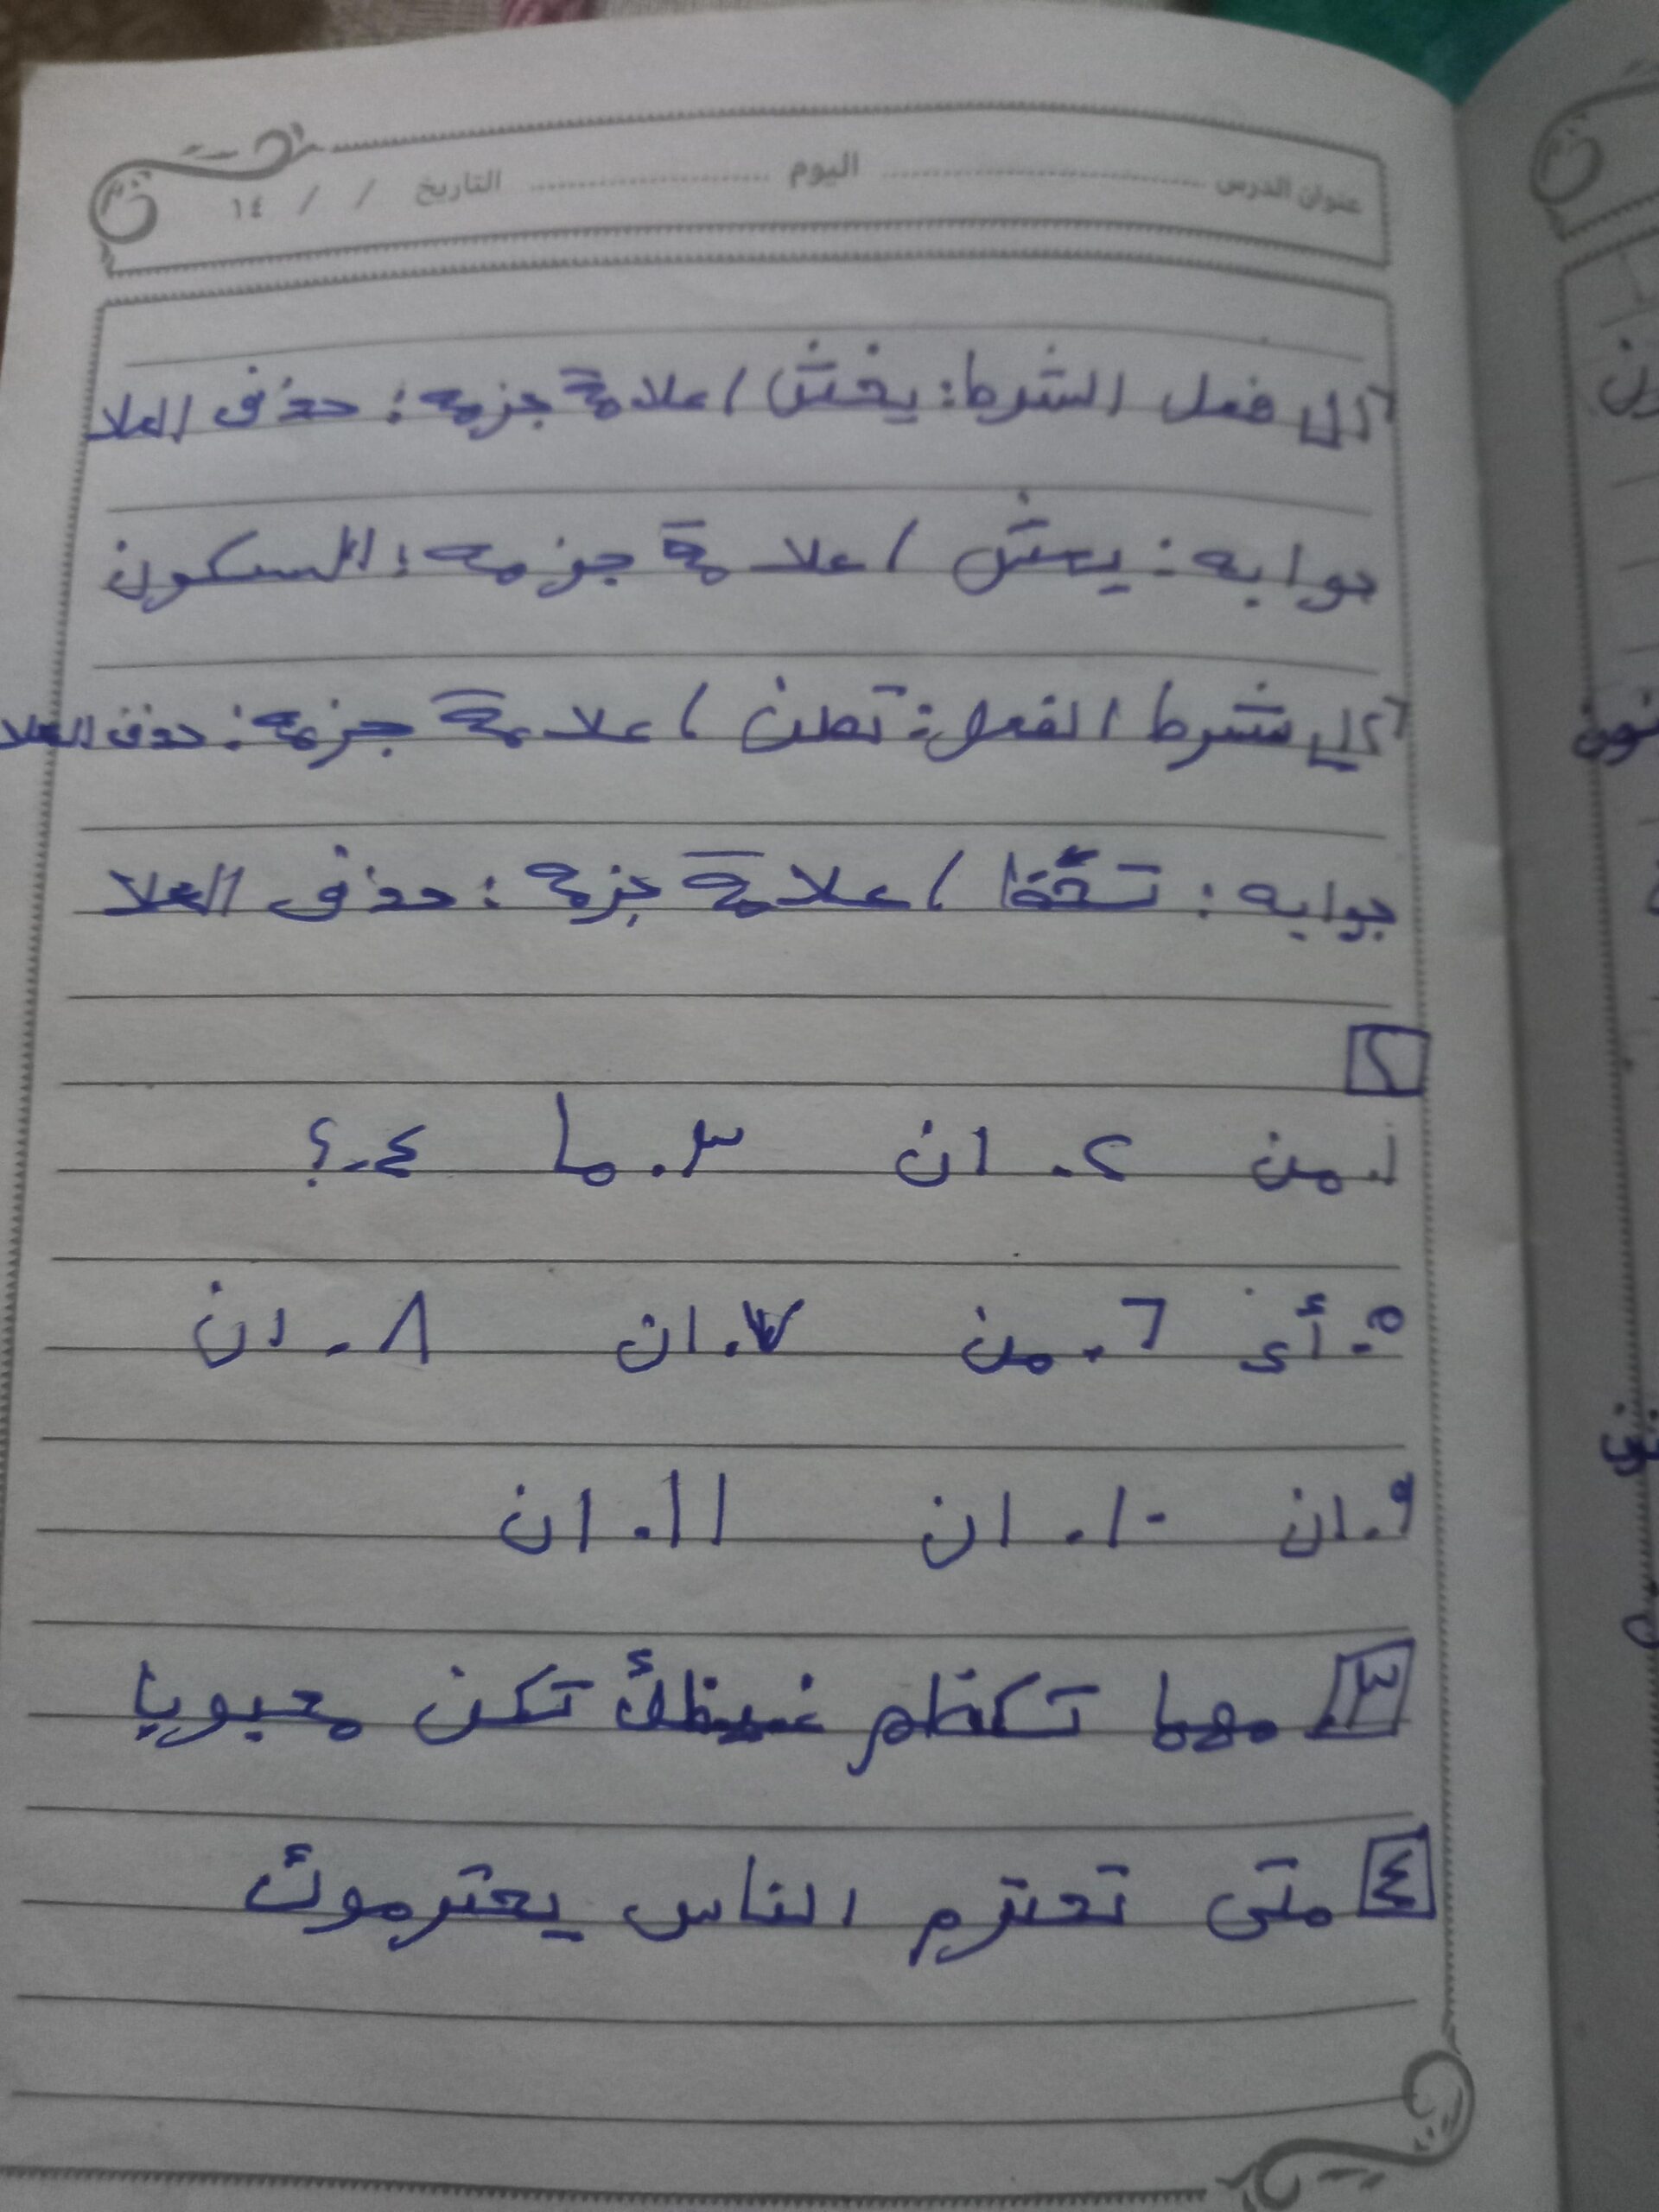 عنوان الدرس اليوم التاريخ / / ١٤
فعل الشرط: يخش / علامة جزمه: حذف العلا
جوابه: يعش / علامة جزمه: السكون
شرط الفعل: تصن / علامة جزمه: حذف العلا
جوابه: / علامة جزمه: حذف العلا
٢
١. من ٢. ان ٣. ما ٤. ؟
٥. أي ٦. من ٧. ان ٨. ان
٩. ان ١٠. ان ١١. ان
٣ مهما تكظم غيظك تكن محبوبا
٤ متى تحترم الناس يحترموك